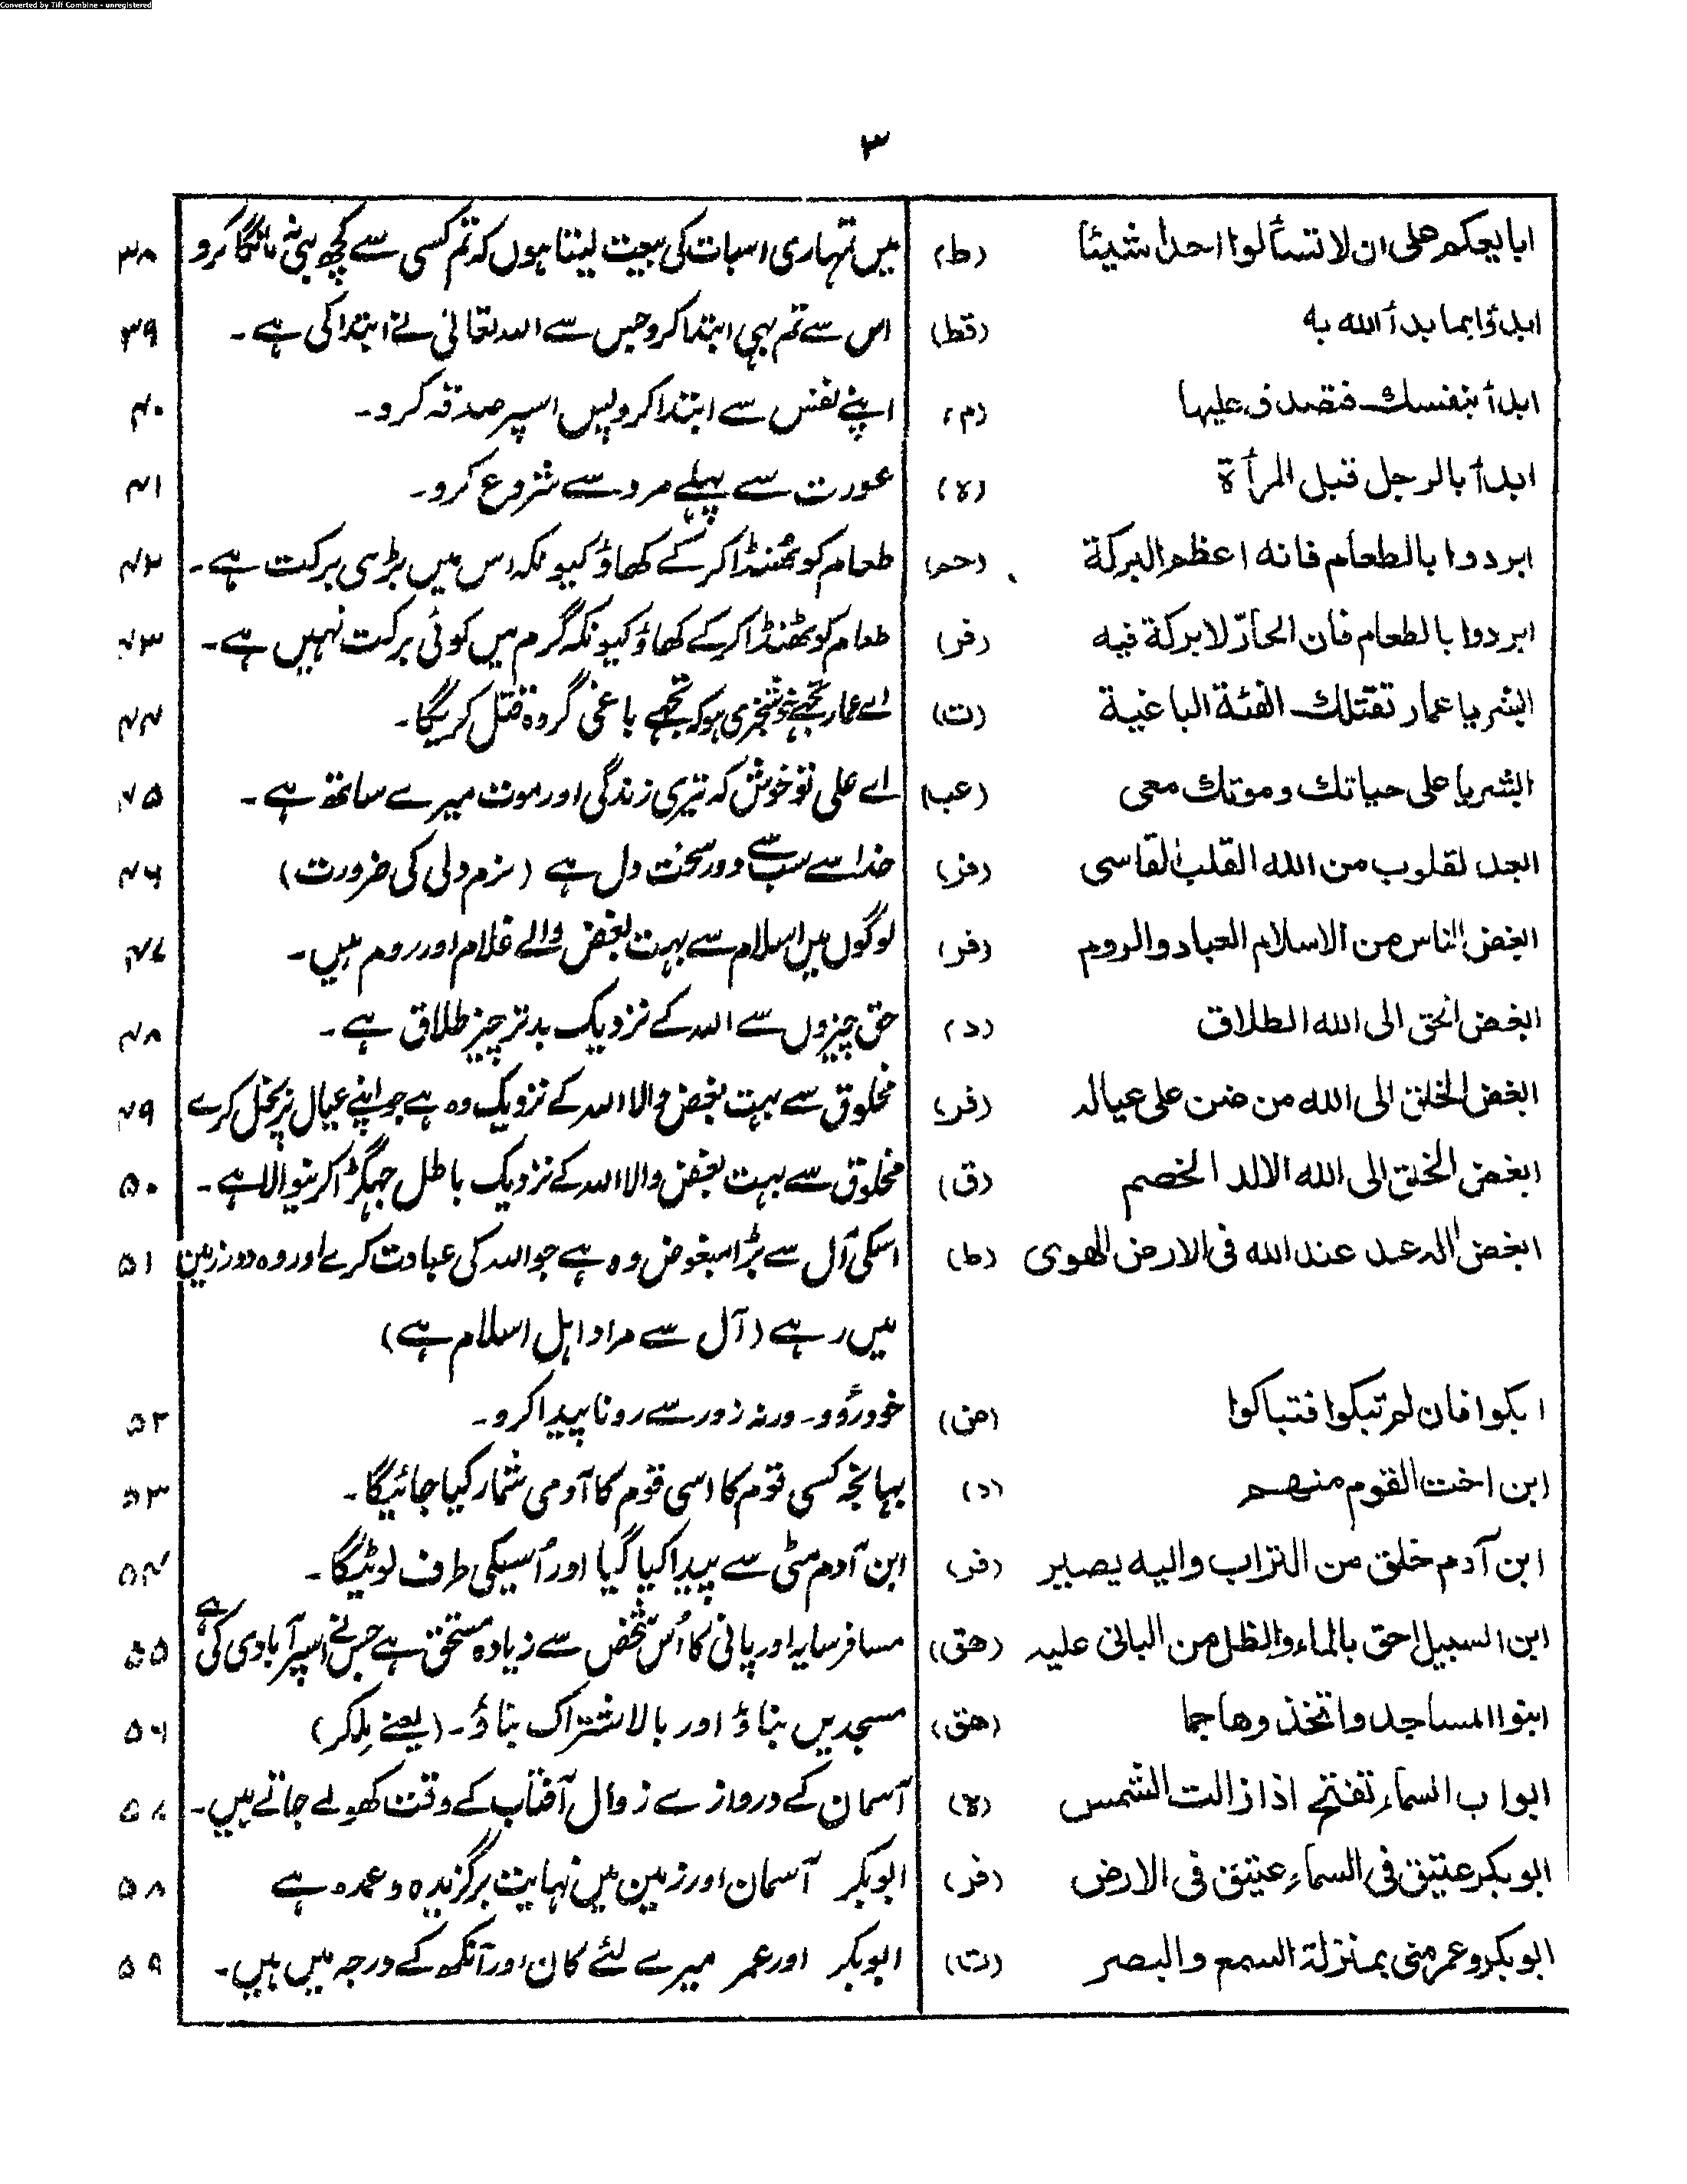 Converted by Tiff Combine - unregistered
۳
ابايعكم على ان لا تسألوا احدا شيئا (ط) میں تمہاری اسبات کی بیعت لیتا ہوں کہ تم کسی سے کچھ بہی نہ مانگا کرو ۳۸
ابدؤا بما بدأ الله به (قط) اس سے تم بہی ابتدا کرو جس سے اللہ تعالی نے ابتدا کی ہے۔ ۳۹
ابدأ بنفسك فتصدق عليها (م) اپنے نفس سے ابتدا کرو پس اسپر صدقہ کرو۔ ۴۰
ابدأ بالرجل قبل المرأة (لا) عورت سے پہلے مرد سے شروع کرو۔ ۴۱
ابردوا بالطعام فانه اعظم البركة (حم) طعام کو ٹھنڈا کر کے کھاؤ کیونکہ اس میں بڑی برکت ہے۔ ۴۲
ابردوا بالطعام فان الحارّ لا بركة فيه (فر) طعام کو ٹھنڈا کر کے کھاؤ کیونکہ گرم میں کوئی برکت نہیں ہے۔ ۴۳
ابشر يا عمار تقتلك الفئة الباغية (ت) اے عمار تجھے خوشخبری ہو کہ تجھے باغی گروہ قتل کریگا۔ ۴۴
ابشر يا على حياتك وموتك معى (عب) اے علی تو خوش کہ تیری زندگی اور موت میرے ساتھ ہے۔ ۴۵
ابعد لقلوب من الله القلب القاسى (فر) خدا سے سب سے دور سخت دل ہے (نرم دلی کی ضرورت) ۴۶
ابغض الناس من الاسلام العباد والروم (فر) لوگوں میں اسلام سے بہت بغض والے غلام اور روم ہیں۔ ۴۷
ابغض الحق الى الله الطلاق (د) حق چیزوں سے اللہ کے نزدیک بدتر چیز طلاق ہے۔ ۴۸
ابغض الخلق الى الله من ضن على عياله (فر) مخلوق سے بہت بغض والا اللہ کے نزدیک وہ ہے جو اپنے عیال پر بخل کرے ۴۹
ابغض الخلق الى الله الالد الخصم (ق) مخلوق سے بہت بغض والا اللہ کے نزدیک باطل جہگڑا کرنیوالا ہے۔ ۵۰
ابغض اله عبد عند الله فى الارض الهوى (ط) اسکی آل سے بڑا مبغوض وہ ہے جو اللہ کی عبادت کرے اور وہ دور زمین ۵۱
میں رہے (آل سے مراد اہل اسلام ہے)
ابكوا فان لم تبكوا فتباكوا (ض) خود رؤو۔ ورنہ زور سے رونا پیدا کرو۔ ۵۲
ابن اخت القوم منهم (د) بہانجہ کسی قوم کا اسی قوم کا آدمی شمار کیا جائیگا۔ ۵۳
ابن آدم خلق من التراب واليه يصير (فر) ابن آدم مٹی سے پیدا کیا گیا اور اُسیکی طرف لوٹیگا۔ ۵۴
ابن السبيل احق بالماء والظل من البانى عليه (هق) مسافر سایہ اور پانی کا اُس شخص سے زیادہ مستحق ہے جس نے اسپر آبادی کی ہے ۵۵
ابنوا المساجد واتخذوها جما (هق) مسجدیں بناؤ اور بالاشتراک بناؤ۔ (یعنے ملکر) ۵۶
ابواب السماء تفتح اذا زالت الشمس (لا) آسمان کے دروازے زوال آفتاب کے وقت کھولے جاتے ہیں۔ ۵۷
ابو بكر عتيق فى السماء عتيق فى الارض (فر) ابوبکر آسمان اور زمین میں نہایت برگزیدہ و عمدہ ہے ۵۸
ابو بكر وعمر منى بمنزلة السمع والبصر (ت) ابوبکر اور عمر میرے لئے کان اور آنکھ کے درجہ میں ہیں۔ ۵۹